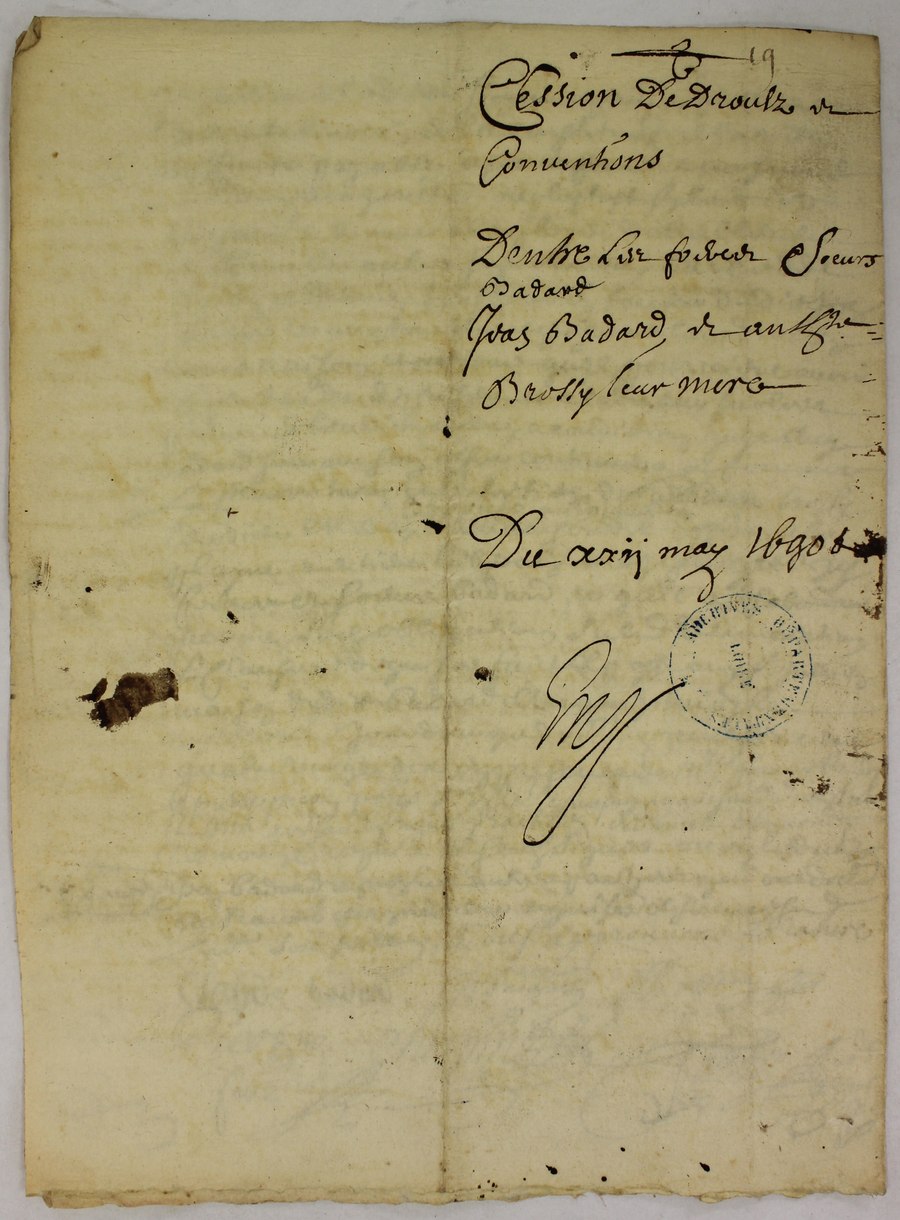 19
Cession De Droultz et
Conventions
Dentre Les freres & Soeurs
Badard
Jean Badard, et anth.tte
Brossy leur mere
Du xxij may 1690
ARCHIVES DÉPARTEMENTALES
LOIRE